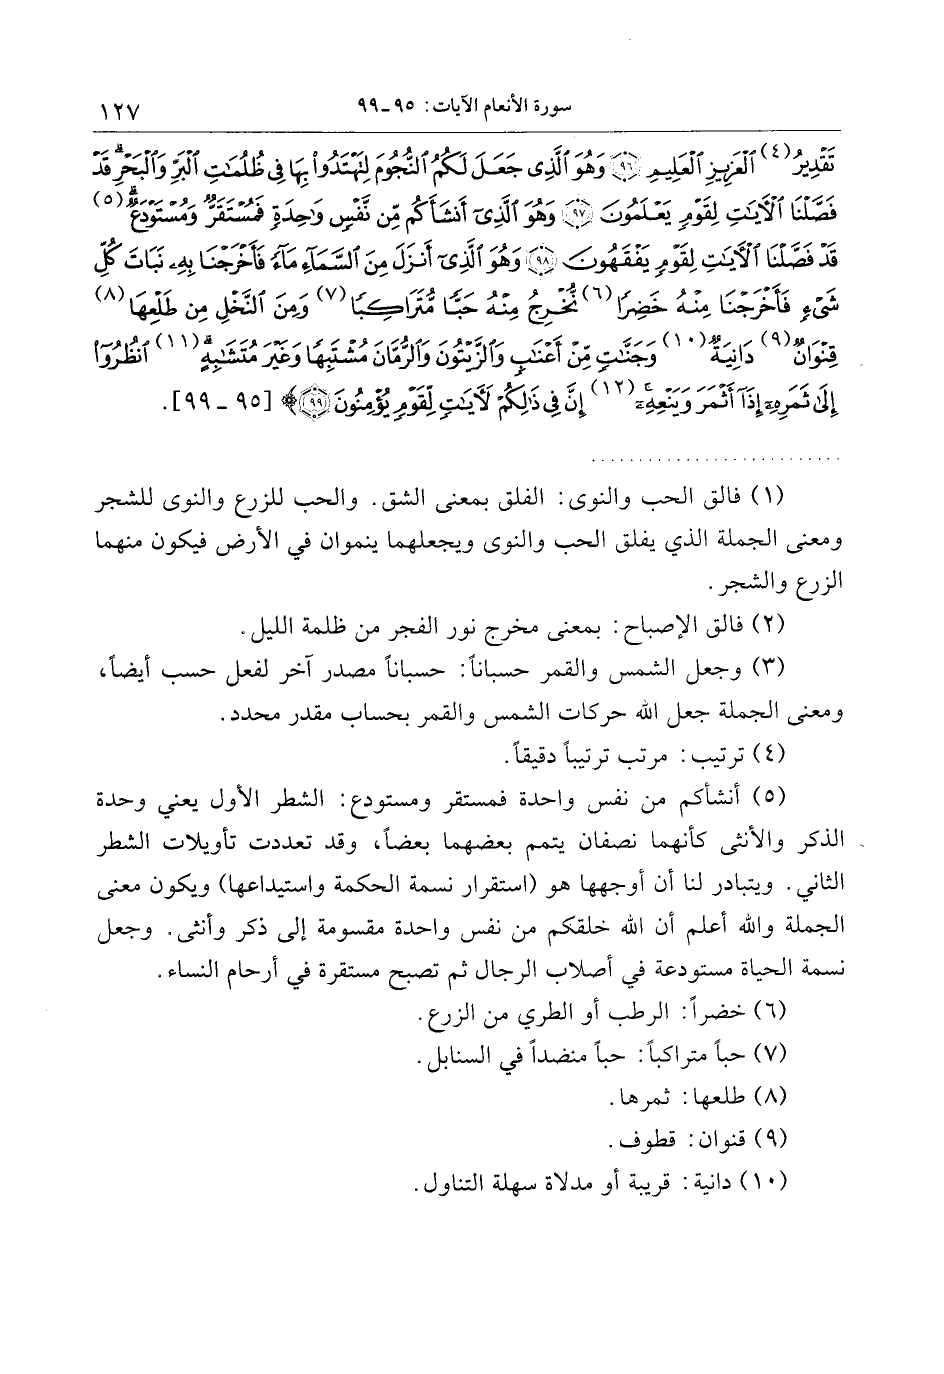 سورة الأنعام الآيات: ٩٥ ـ ٩٩ ١٢٧
تَقْدِيرُ (٤) ٱلْعَزِيزِ ٱلْعَلِيمِ ﴿٩٦﴾ وَهُوَ ٱلَّذِى جَعَلَ لَكُمُ ٱلنُّجُومَ لِتَهْتَدُوا۟ بِهَا فِى ظُلُمَٰتِ ٱلْبَرِّ وَٱلْبَحْرِ ۗ قَدْ
فَصَّلْنَا ٱلْءَايَٰتِ لِقَوْمٍ يَعْلَمُونَ ﴿٩٧﴾ وَهُوَ ٱلَّذِىٓ أَنشَأَكُم مِّن نَّفْسٍ وَٰحِدَةٍ فَمُسْتَقَرٌّ وَمُسْتَوْدَعٌ ۗ (٥)
قَدْ فَصَّلْنَا ٱلْءَايَٰتِ لِقَوْمٍ يَفْقَهُونَ ﴿٩٨﴾ وَهُوَ ٱلَّذِىٓ أَنزَلَ مِنَ ٱلسَّمَآءِ مَآءً فَأَخْرَجْنَا بِهِۦ نَبَاتَ كُلِّ
شَىْءٍ فَأَخْرَجْنَا مِنْهُ خَضِرًا (٦) نُّخْرِجُ مِنْهُ حَبًّا مُّتَرَاكِبًا (٧) وَمِنَ ٱلنَّخْلِ مِن طَلْعِهَا (٨)
قِنْوَانٌ (٩) دَانِيَةٌ (١٠) وَجَنَّٰتٍ مِّنْ أَعْنَابٍ وَٱلزَّيْتُونَ وَٱلرُّمَّانَ مُشْتَبِهًا وَغَيْرَ مُتَشَٰبِهٍ ۗ (١١) ٱنظُرُوٓا۟
إِلَىٰ ثَمَرِهِۦٓ إِذَآ أَثْمَرَ وَيَنْعِهِۦٓ ۚ (١٢) إِنَّ فِى ذَٰلِكُمْ لَءَايَٰتٍ لِّقَوْمٍ يُؤْمِنُونَ ﴿٩٩﴾﴾ [٩٥ ـ ٩٩].
(١) فالق الحب والنوى: الفلق بمعنى الشق. والحب للزرع والنوى للشجر
ومعنى الجملة الذي يفلق الحب والنوى ويجعلهما ينموان في الأرض فيكون منهما
الزرع والشجر.
(٢) فالق الإصباح: بمعنى مخرج نور الفجر من ظلمة الليل.
(٣) وجعل الشمس والقمر حسباناً: حسباناً مصدر آخر لفعل حسب أيضاً،
ومعنى الجملة جعل الله حركات الشمس والقمر بحساب مقدر محدد.
(٤) ترتيب: مرتب ترتيباً دقيقاً.
(٥) أنشأكم من نفس واحدة فمستقر ومستودع: الشطر الأول يعني وحدة
الذكر والأنثى كأنهما نصفان يتمم بعضهما بعضاً، وقد تعددت تأويلات الشطر
الثاني. ويتبادر لنا أن أوجهها هو (استقرار نسمة الحكمة واستيداعها) ويكون معنى
الجملة والله أعلم أن الله خلقكم من نفس واحدة مقسومة إلى ذكر وأنثى. وجعل
نسمة الحياة مستودعة في أصلاب الرجال ثم تصبح مستقرة في أرحام النساء.
(٦) خضراً: الرطب أو الطري من الزرع.
(٧) حباً متراكباً: حباً منضداً في السنابل.
(٨) طلعها: ثمرها.
(٩) قنوان: قطوف.
(١٠) دانية: قريبة أو مدلاة سهلة التناول.